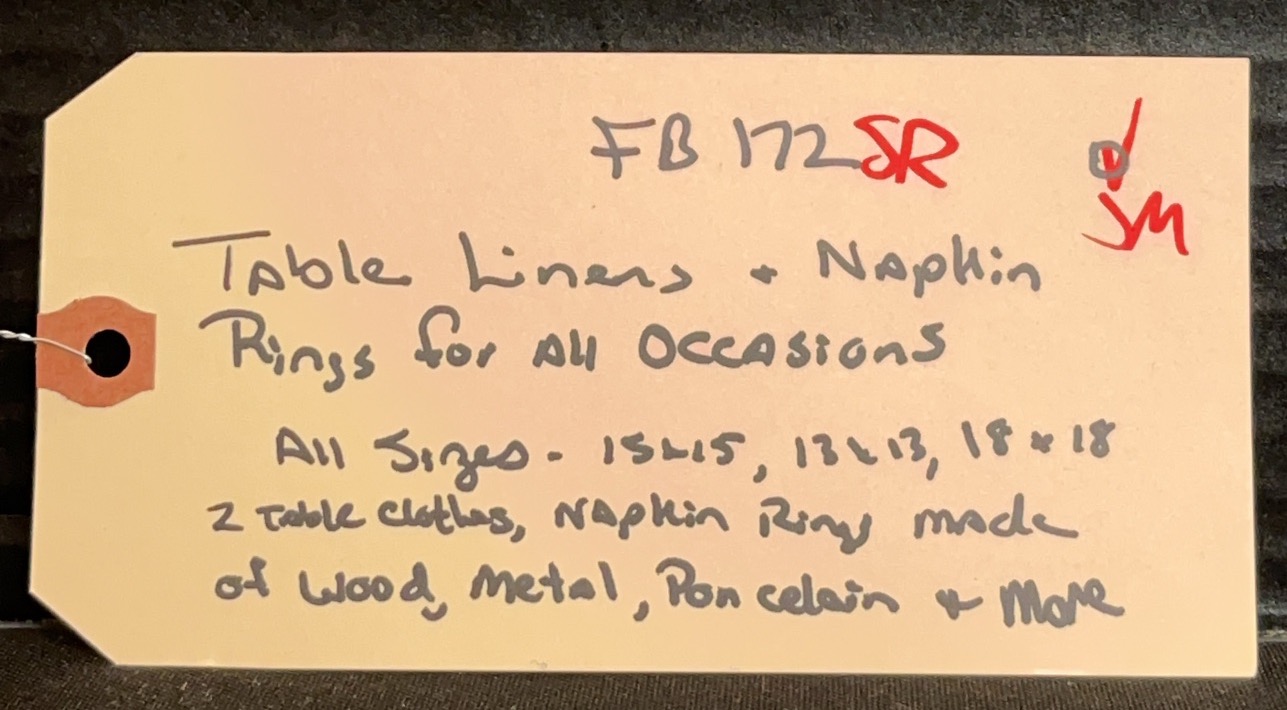 FB 172 SR
JM
Table Linens + Napkin
Rings for All Occasions
All Sizes - 15x15, 13x13, 18x18
2 Table Cloths, Napkin Rings made
of Wood, Metal, Porcelain + More